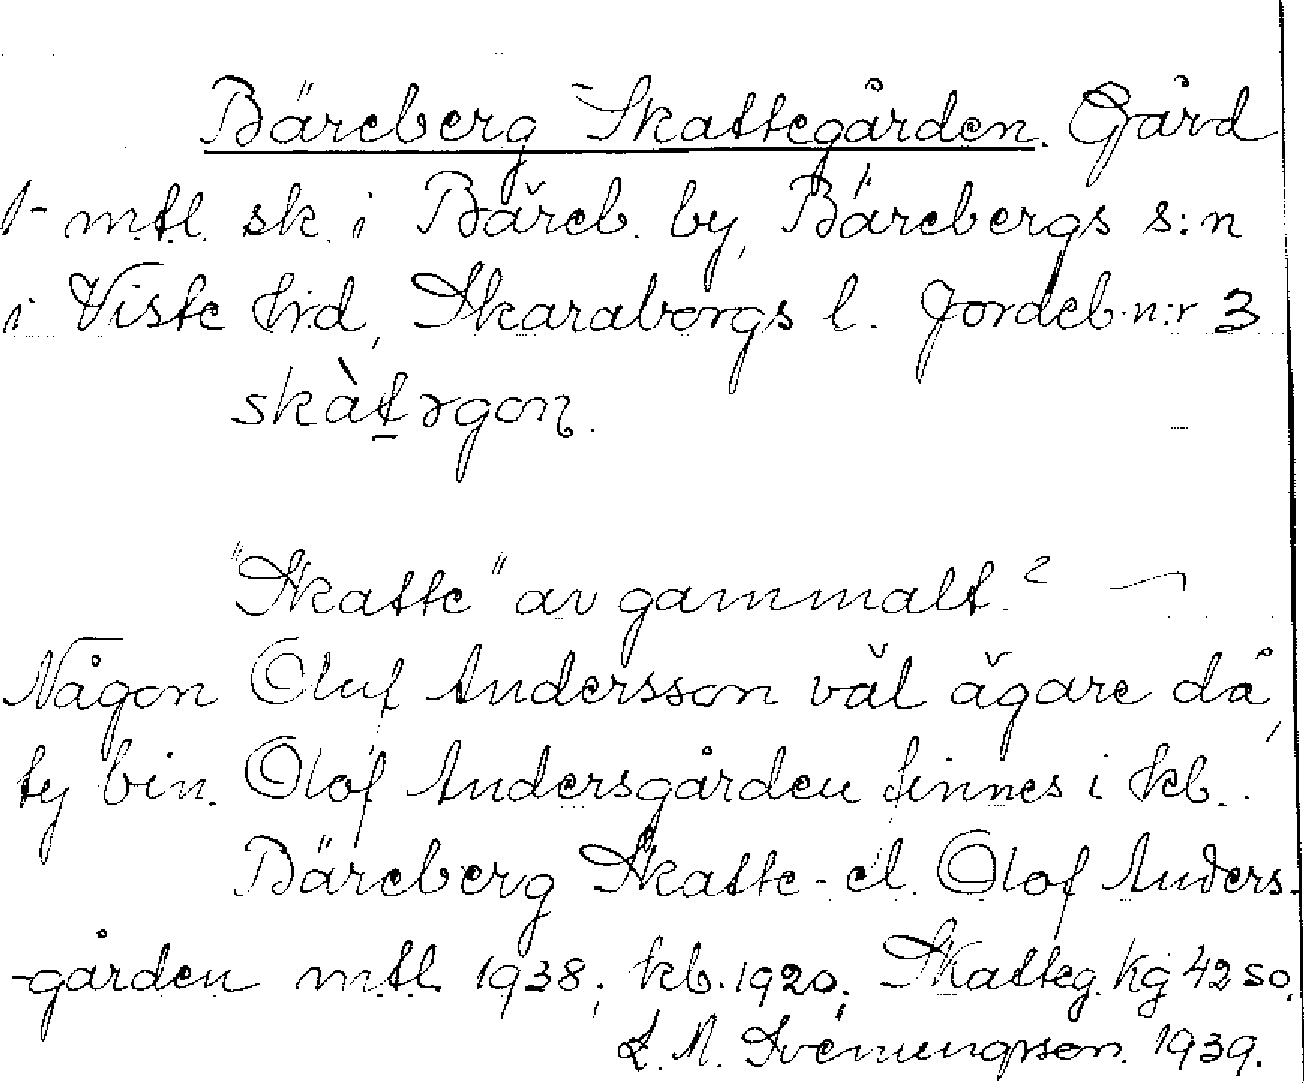 Bäreberg Skattegården. Gård
1 mtl. sk. i Bäreb. by, Bärebergs s:n
i Viste hrd, Skaraborgs l. Jordeb. n:r 3
skàt̠ǝgon.
"Skatte" av gammalt?
Någon Oluf Andersson väl ägare då,
ty bin. Olof Andersgården finnes i kb.
Bäreberg Skatte- el. Olof Anders-
-gården mtl 1938; kb. 1920; Skatteg. Kg 42 SO.
L. M. Svenungsson. 1939.